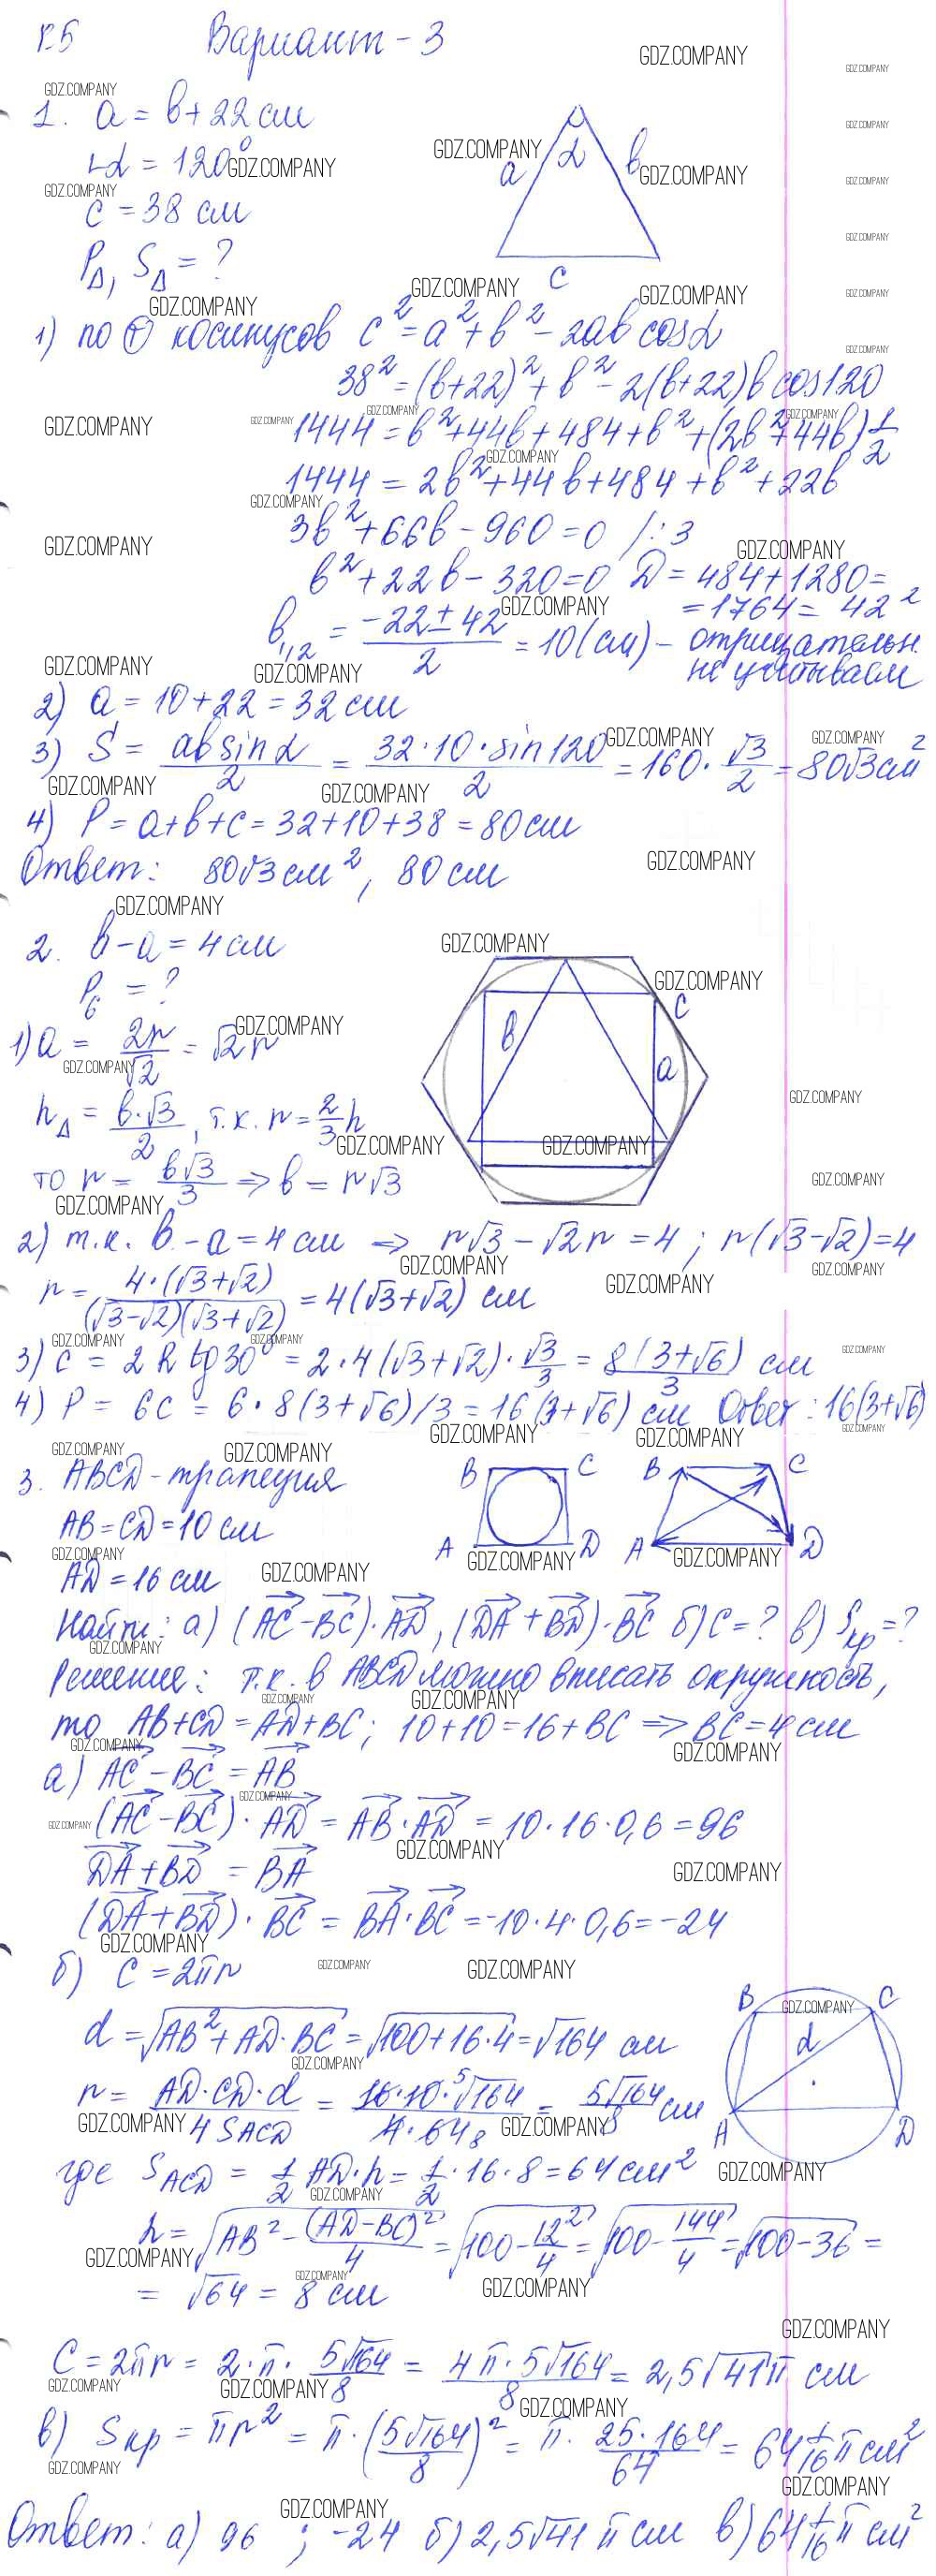 К5 Вариант - 3
1. a = b + 22 см
∠α = 120°
c = 38 см
P△, S△ = ?
a α b
c
1) по Т косинусов c² = a² + b² - 2ab cos α
38² = (b+22)² + b² - 2(b+22)b cos 120
1444 = b² + 44b + 484 + b² + (2b² + 44b) 1/2
1444 = 2b² + 44b + 484 + b² + 22b
3b² + 66b - 960 = 0 /: 3
b² + 22b - 320 = 0 D = 484 + 1280 =
= 1764 = 42²
b₁,₂ = (-22 ± 42)/2 = 10 (см) - отрицательн.
не учитываем
2) a = 10 + 22 = 32 см
3) S = (ab sin α)/2 = (32 · 10 · sin 120)/2 = 160 · √3/2 = 80√3 см²
4) P = a + b + c = 32 + 10 + 38 = 80 см
Ответ: 80√3 см², 80 см
2. b - a = 4 см
P₆ = ?
b c a
1) a = 2r/√2 = √2 r
h△ = b·√3/2, т.к. r = 2/3 h
то r = b√3/3 => b = r√3
2) т.к. b - a = 4 см => r√3 - √2 r = 4; r(√3 - √2) = 4
r = 4·(√3+√2)/((√3-√2)(√3+√2)) = 4(√3+√2) см
3) c = 2R tg 30° = 2·4(√3+√2)·√3/3 = 8(3+√6)/3 см
4) P = 6c = 6·8(3+√6)/3 = 16(3+√6) см Ответ: 16(3+√6)
3. ABCD - трапеция
B C A D
B C A D
AB = CD = 10 см
AD = 16 см
Найти: а) (AC - BC)·AD, (DA + BD)·BC б) C = ? в) Sкр = ?
Решение: т.к. в ABCD можно вписать окружность,
то AB + CD = AD + BC; 10 + 10 = 16 + BC => BC = 4 см
а) AC - BC = AB
(AC - BC)·AD = AB·AD = 10·16·0,6 = 96
DA + BD = BA
(DA + BD)·BC = BA·BC = -10·4·0,6 = -24
б) C = 2πr
d = √(AB² + AD·BC) = √(100 + 16·4) = √164 см
B C d A D
r = (AD·CD·d)/(4 S ACD) = (16·10·⁵√164)/(4·64₈) = 5√164/8 см
где S ACD = 1/2 AD·h = 1/2 · 16 · 8 = 64 см²
h = √(AB² - (AD-BC)²/4) = √(100 - 12²/4) = √(100 - 144/4) = √(100 - 36) =
= √64 = 8 см
C = 2πr = 2·π·5√164/8 = 4π·5√164/8 = 2,5√41 π см
в) Sкр = πr² = π·(5√164/8)² = π·25·164/64 = 64 1/16 π см²
Ответ: а) 96; -24 б) 2,5√41 π см в) 64 1/16 π см²
GDZ.COMPANY